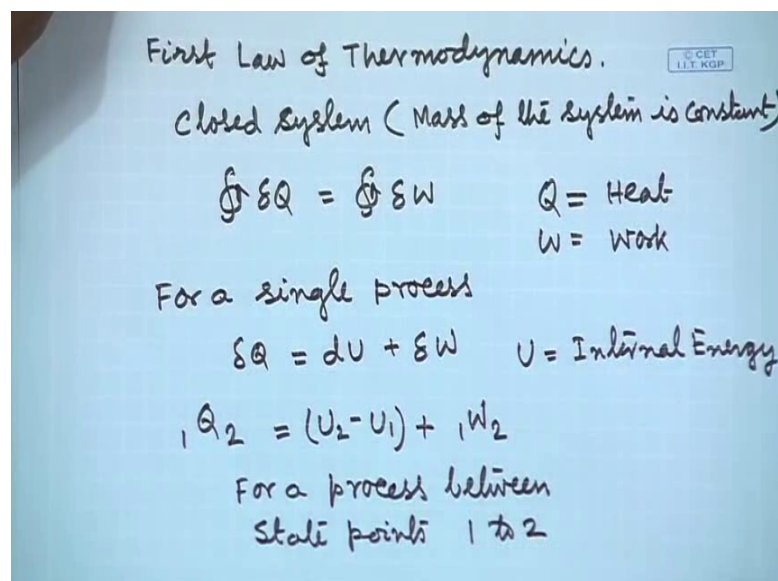 First Law of Thermodynamics.
© CET
I.I.T. KGP
Closed System (Mass of the System is constant)
∮ δQ = ∮ δW Q = Heat
W = Work
For a single process
δQ = dU + δW U = Internal Energy
₁Q₂ = (U₂ - U₁) + ₁W₂
For a process between
State points 1 to 2